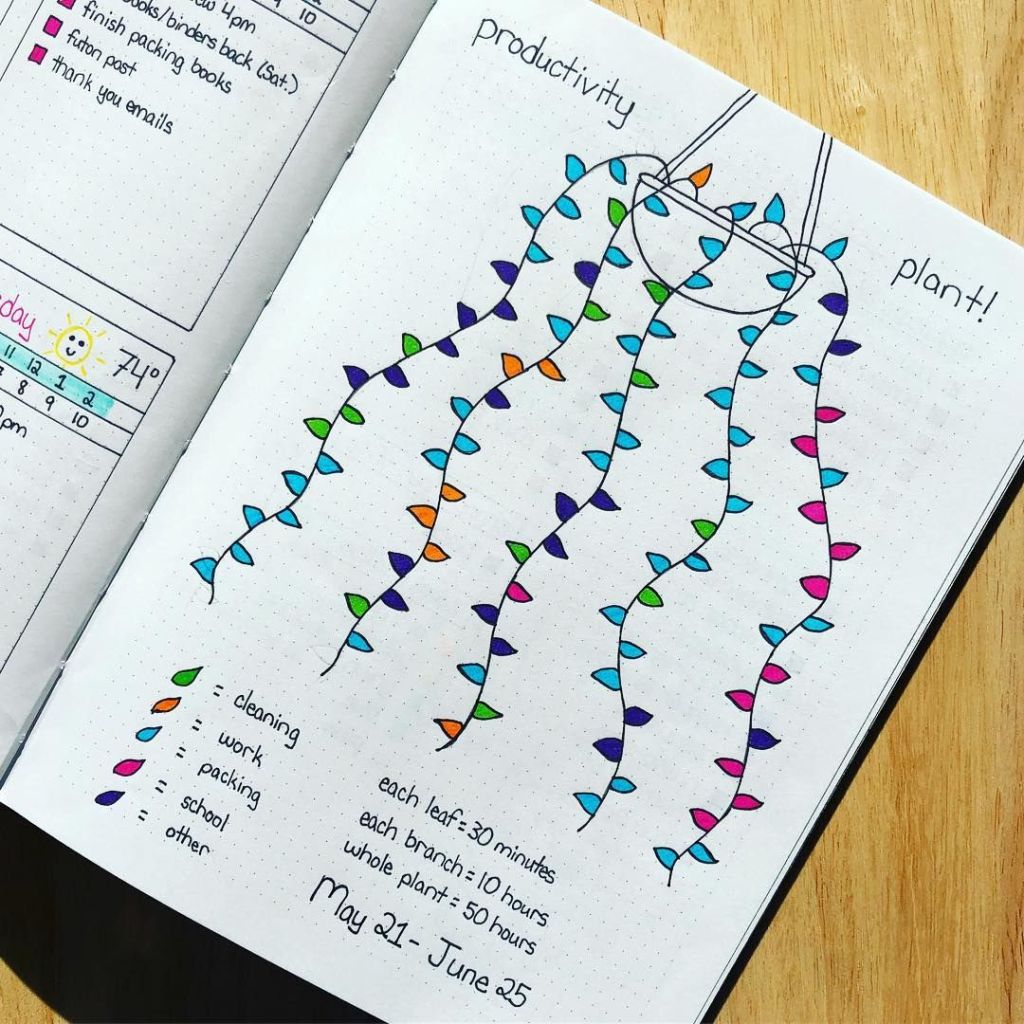 4pm
books/binders back (Sat.)
finish packing books
futon post
thank you emails
10
day
74°
11 12 1 2
8 9 10
pm
productivity
plant!
= cleaning
= work
= packing
= school
= other
each leaf = 30 minutes
each branch = 10 hours
whole plant = 50 hours
May 21 - June 25